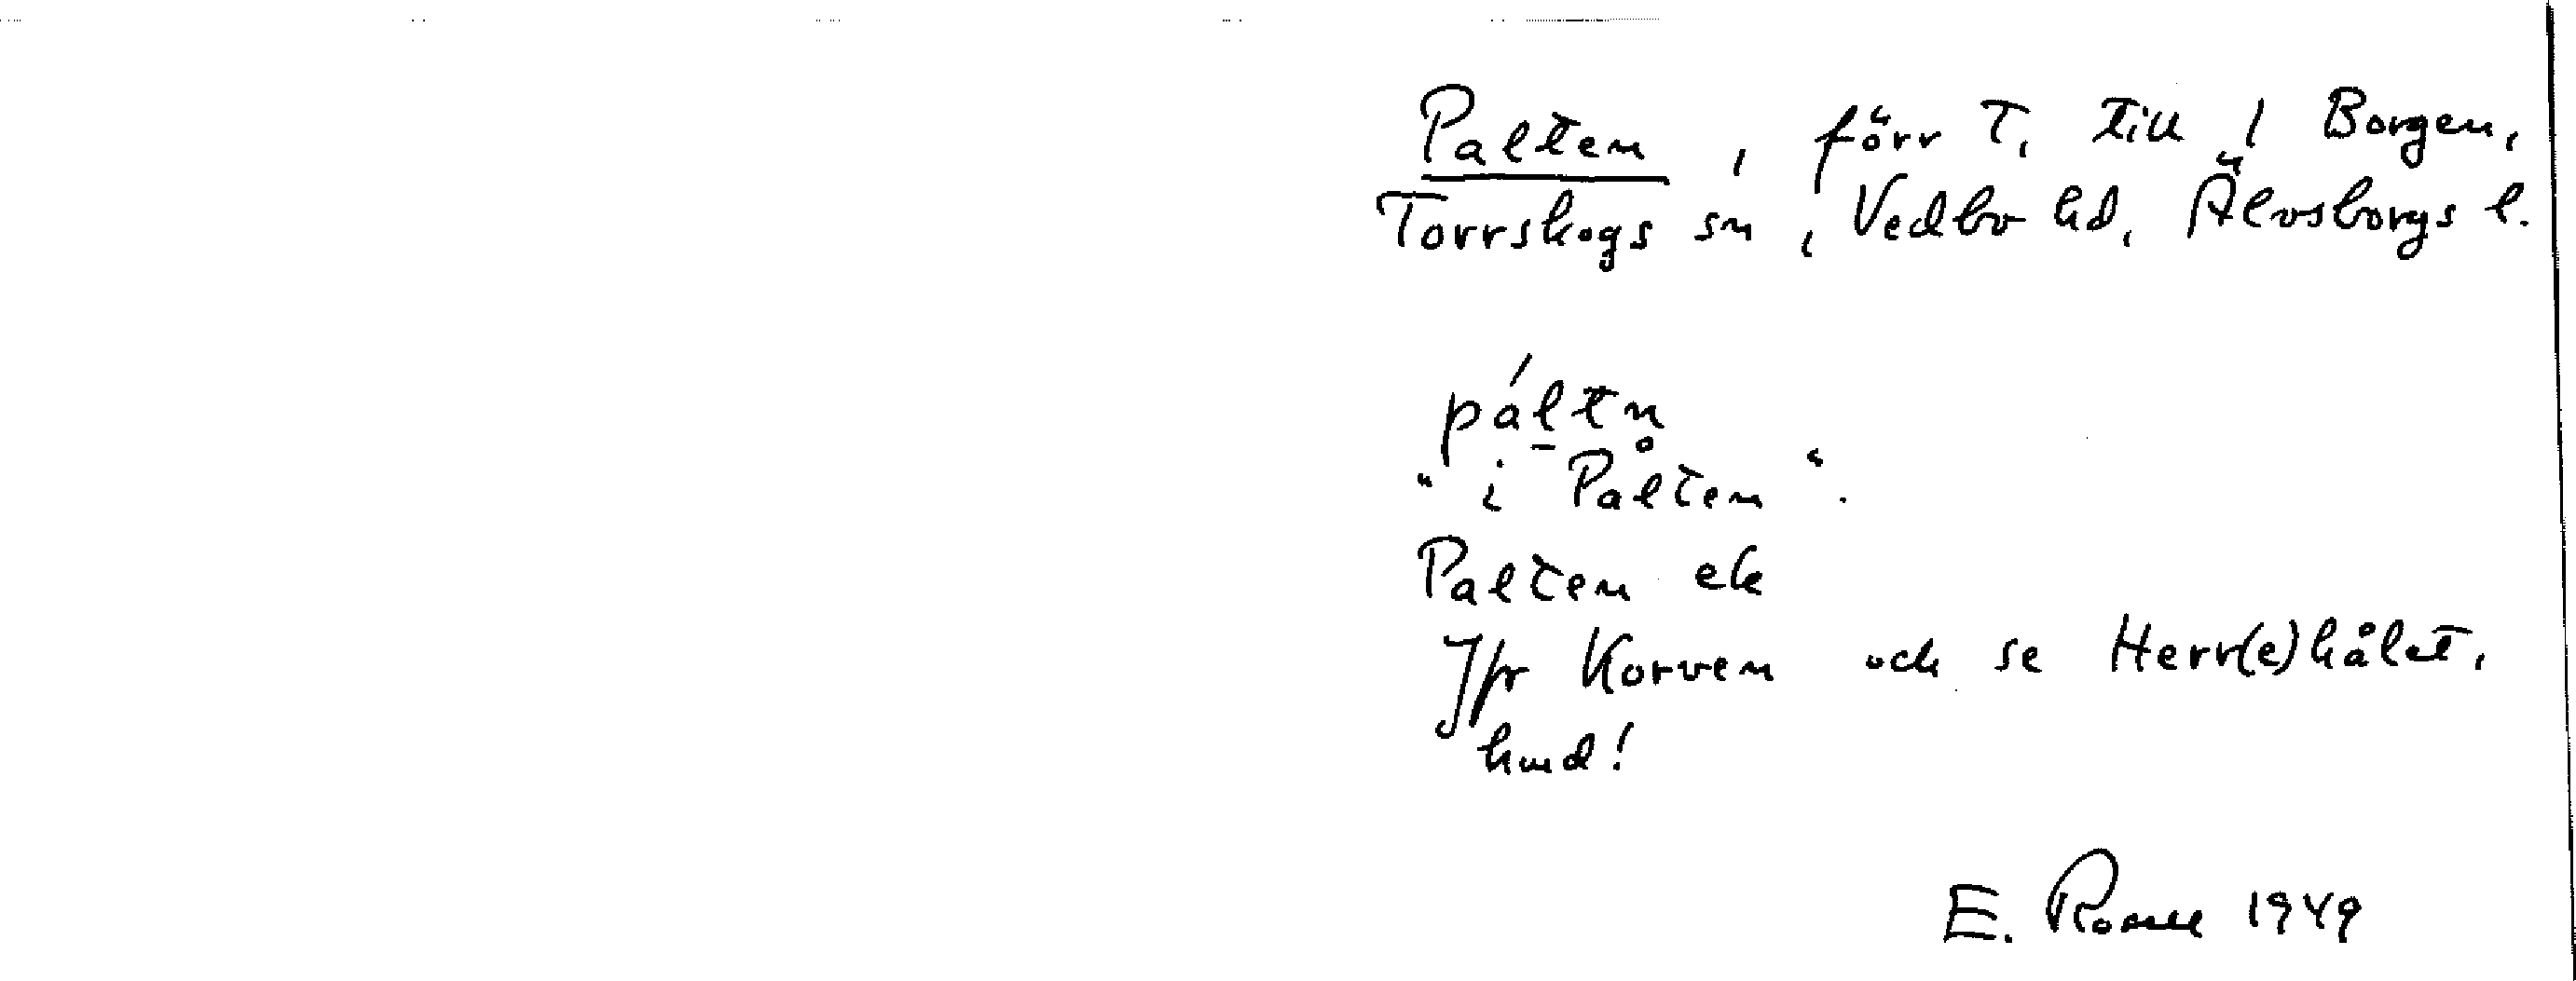 Palten, förr T, till 1 Borgen,
Torrskogs sn, Vedbo hd, Älvsborgs l.
páltn̥
"i Palten".
Palten ek
Jfr Korven och se Herr(e)hålet,
hmd!
E. 1949